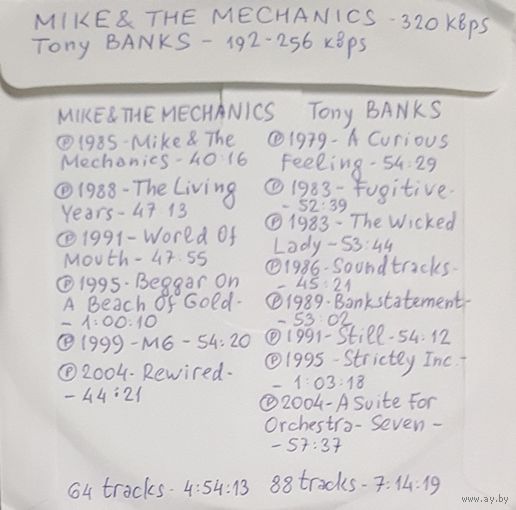 MIKE & THE MECHANICS - 320 KBps
Tony BANKS - 192-256 KBps
MIKE & THE MECHANICS
℗ 1985 - Mike & The
Mechanics - 40:16
℗ 1988 - The Living
Years - 47 13
℗ 1991 - World Of
Mouth - 47:55
℗ 1995 - Beggar On
A Beach Of Gold -
- 1:00:10
℗ 1999 - M6 - 54:20
℗ 2004 - Rewired -
- 44:21
64 tracks - 4:54:13
Tony BANKS
℗ 1979 - A Curious
Feeling - 54:29
℗ 1983 - Fugitive -
- 52:39
℗ 1983 - The Wicked
Lady - 53:44
℗ 1986 - Soundtracks -
- 45:21
℗ 1989 - Bankstatement -
- 53:02
℗ 1991 - Still - 54:12
℗ 1995 - Strictly Inc. -
- 1:03:18
℗ 2004 - A Suite For
Orchestra - Seven -
- 57:37
88 tracks - 7:14:19
www.ay.by